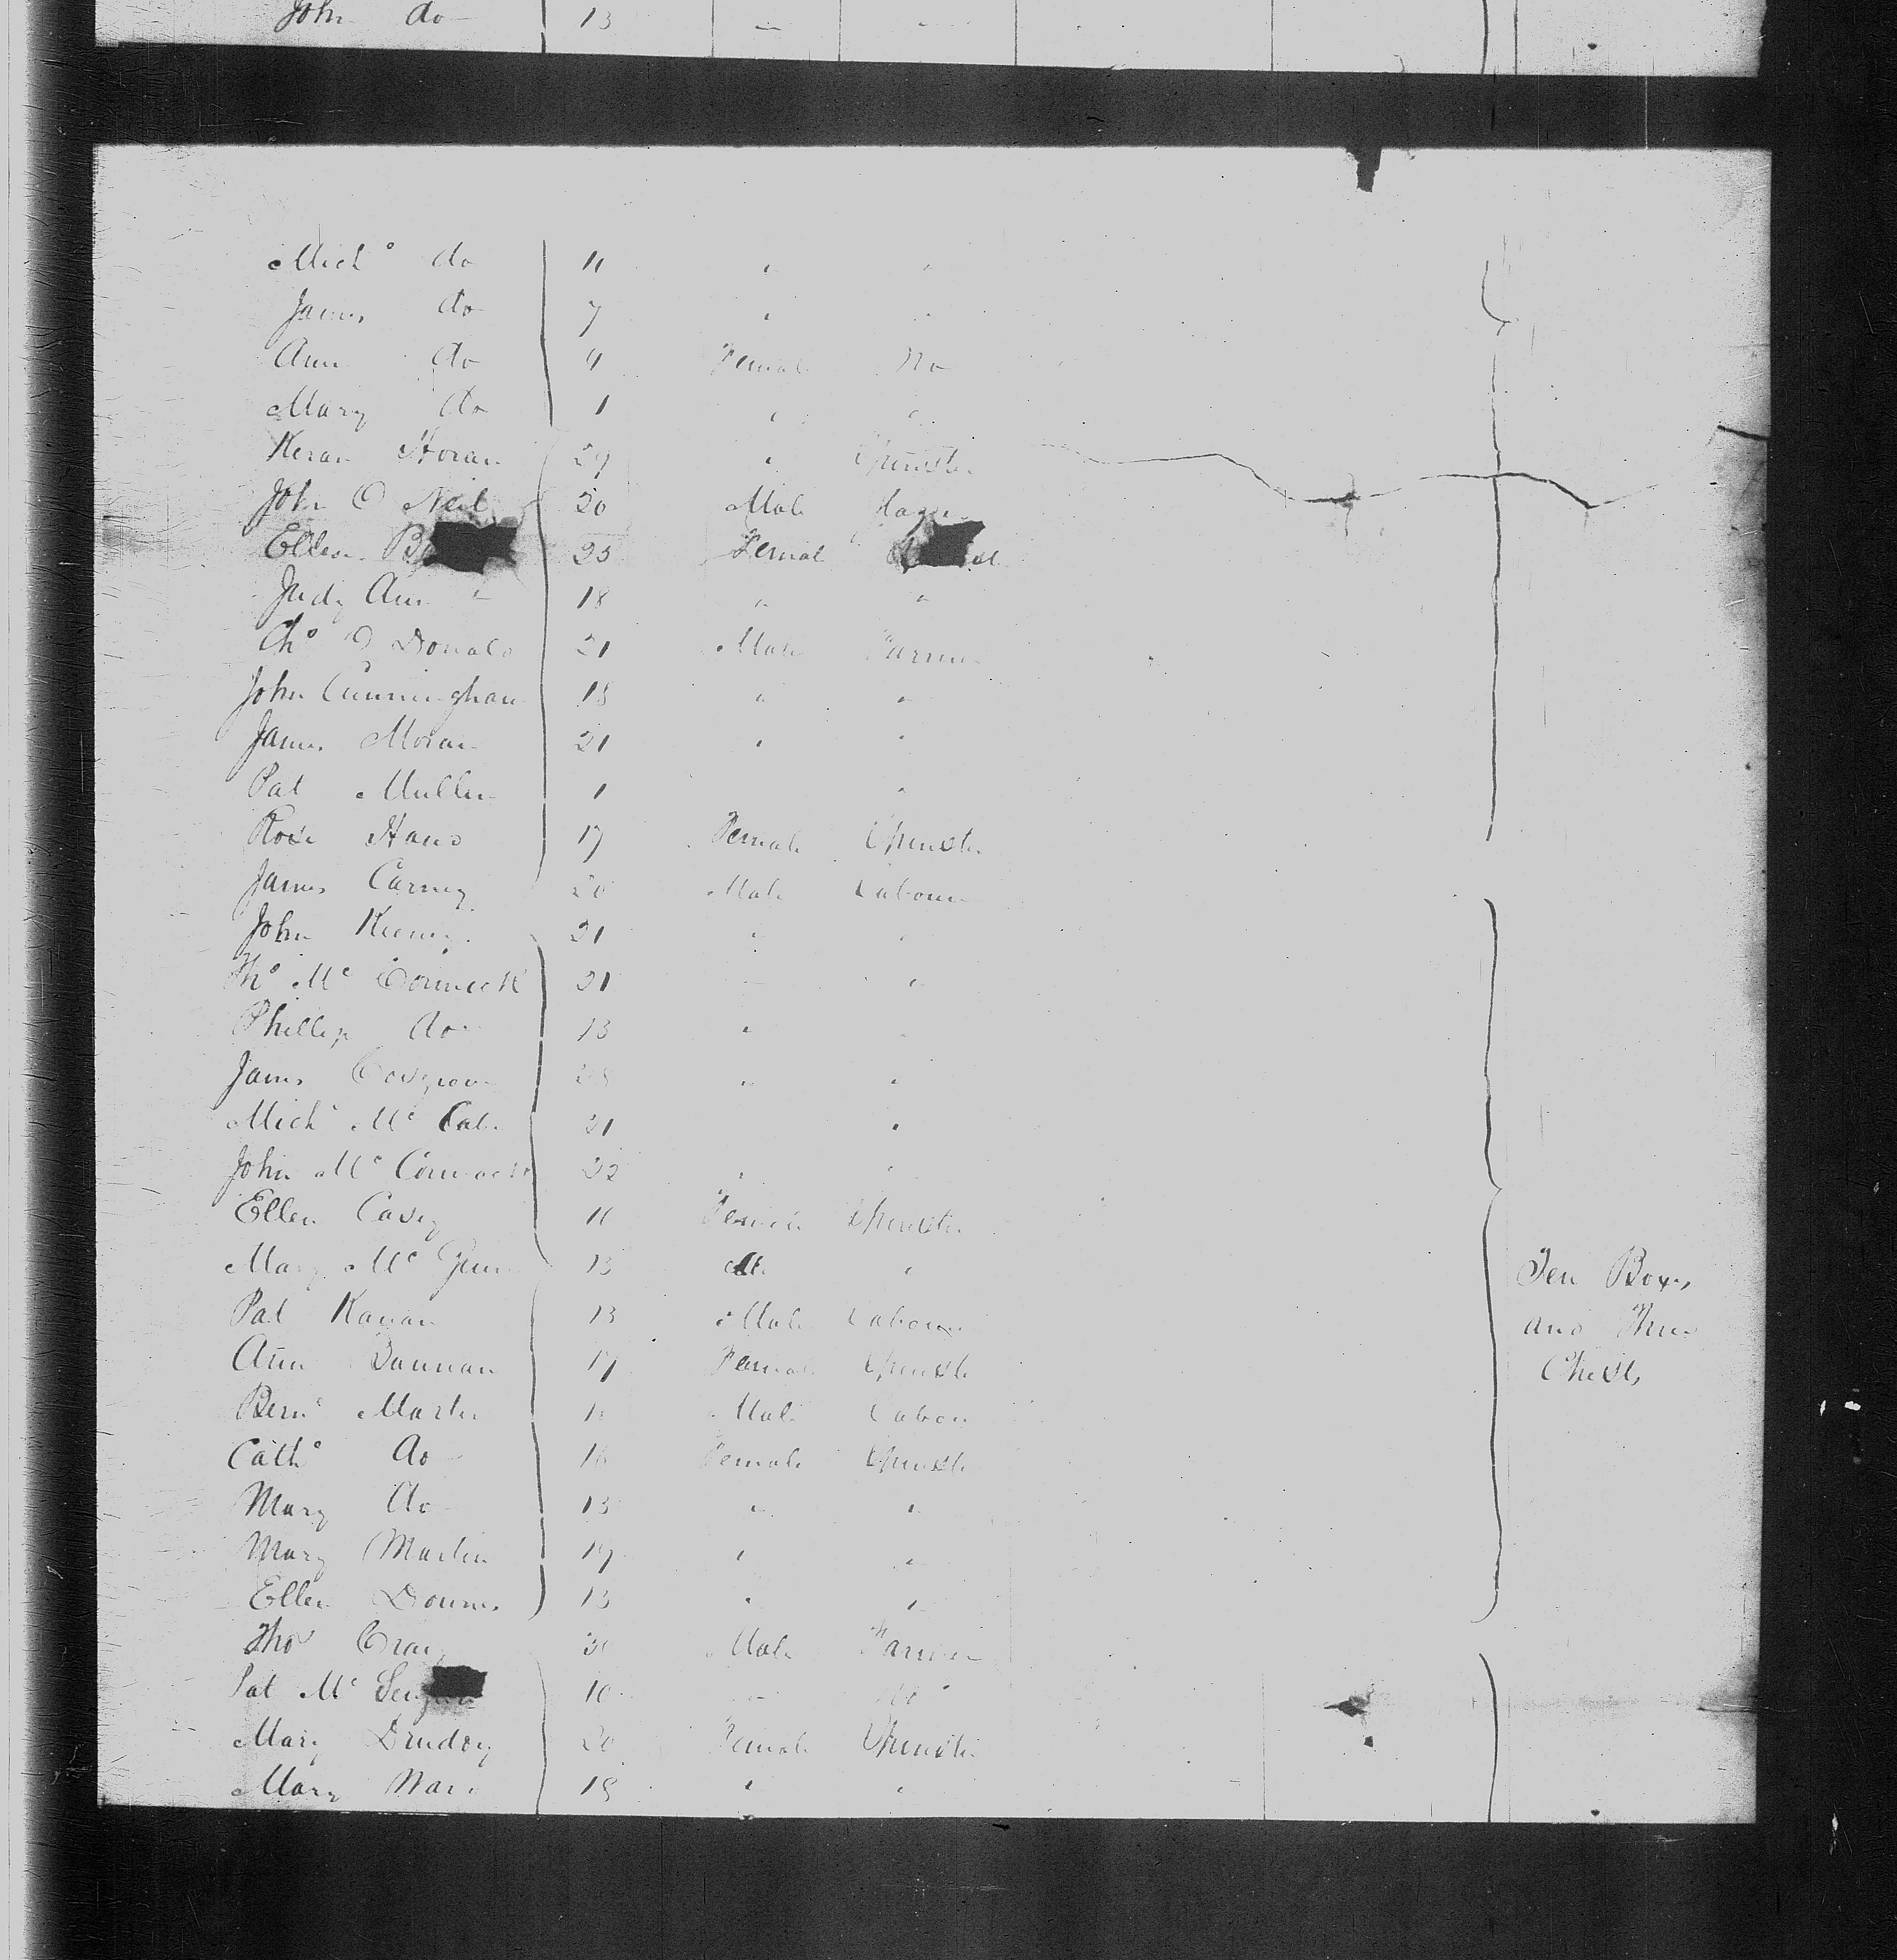 John do 13
Mich° do 11 " "
James do 7 " "
Ann do 4 Female No
Mary do 1 " "
Keran Horan 29 " Spinster
John O Neil 20 Male
Ellen 25 Female
Judy Ann " 18 " "
Th° O Donald 21 Male Farmer
John Cunningham 18 " "
James Moran 21 " "
Pat Mullen 1 "
Rose Haws 17 Female Spinster
James Carney 20 Male Labourer
John Kierney 21 " "
Th° Mc Cormick 21 " "
Phillip do 13 " "
James Cosgrove 28 " "
Mich° Mc Cabe 21 "
John Mc Cormack 22 " "
Ellen Casey 11 Female Spinster
Mary Mc 13 "
Pat Kanan 13 Male Labourer
Ann Bannan 17 Female Spinster
Bern° Martin Male Labour
Cath° do 16 Female Spinster
Mary do 13 " "
Mary Martin 19 " "
Ellen Downes 13 " "
Thos Male Farmer
Pat Mc 10 " No
Mary Drudey 20 Female Spinster
Mary Ward 18 " "
Ten Boxes
and Three
Chests